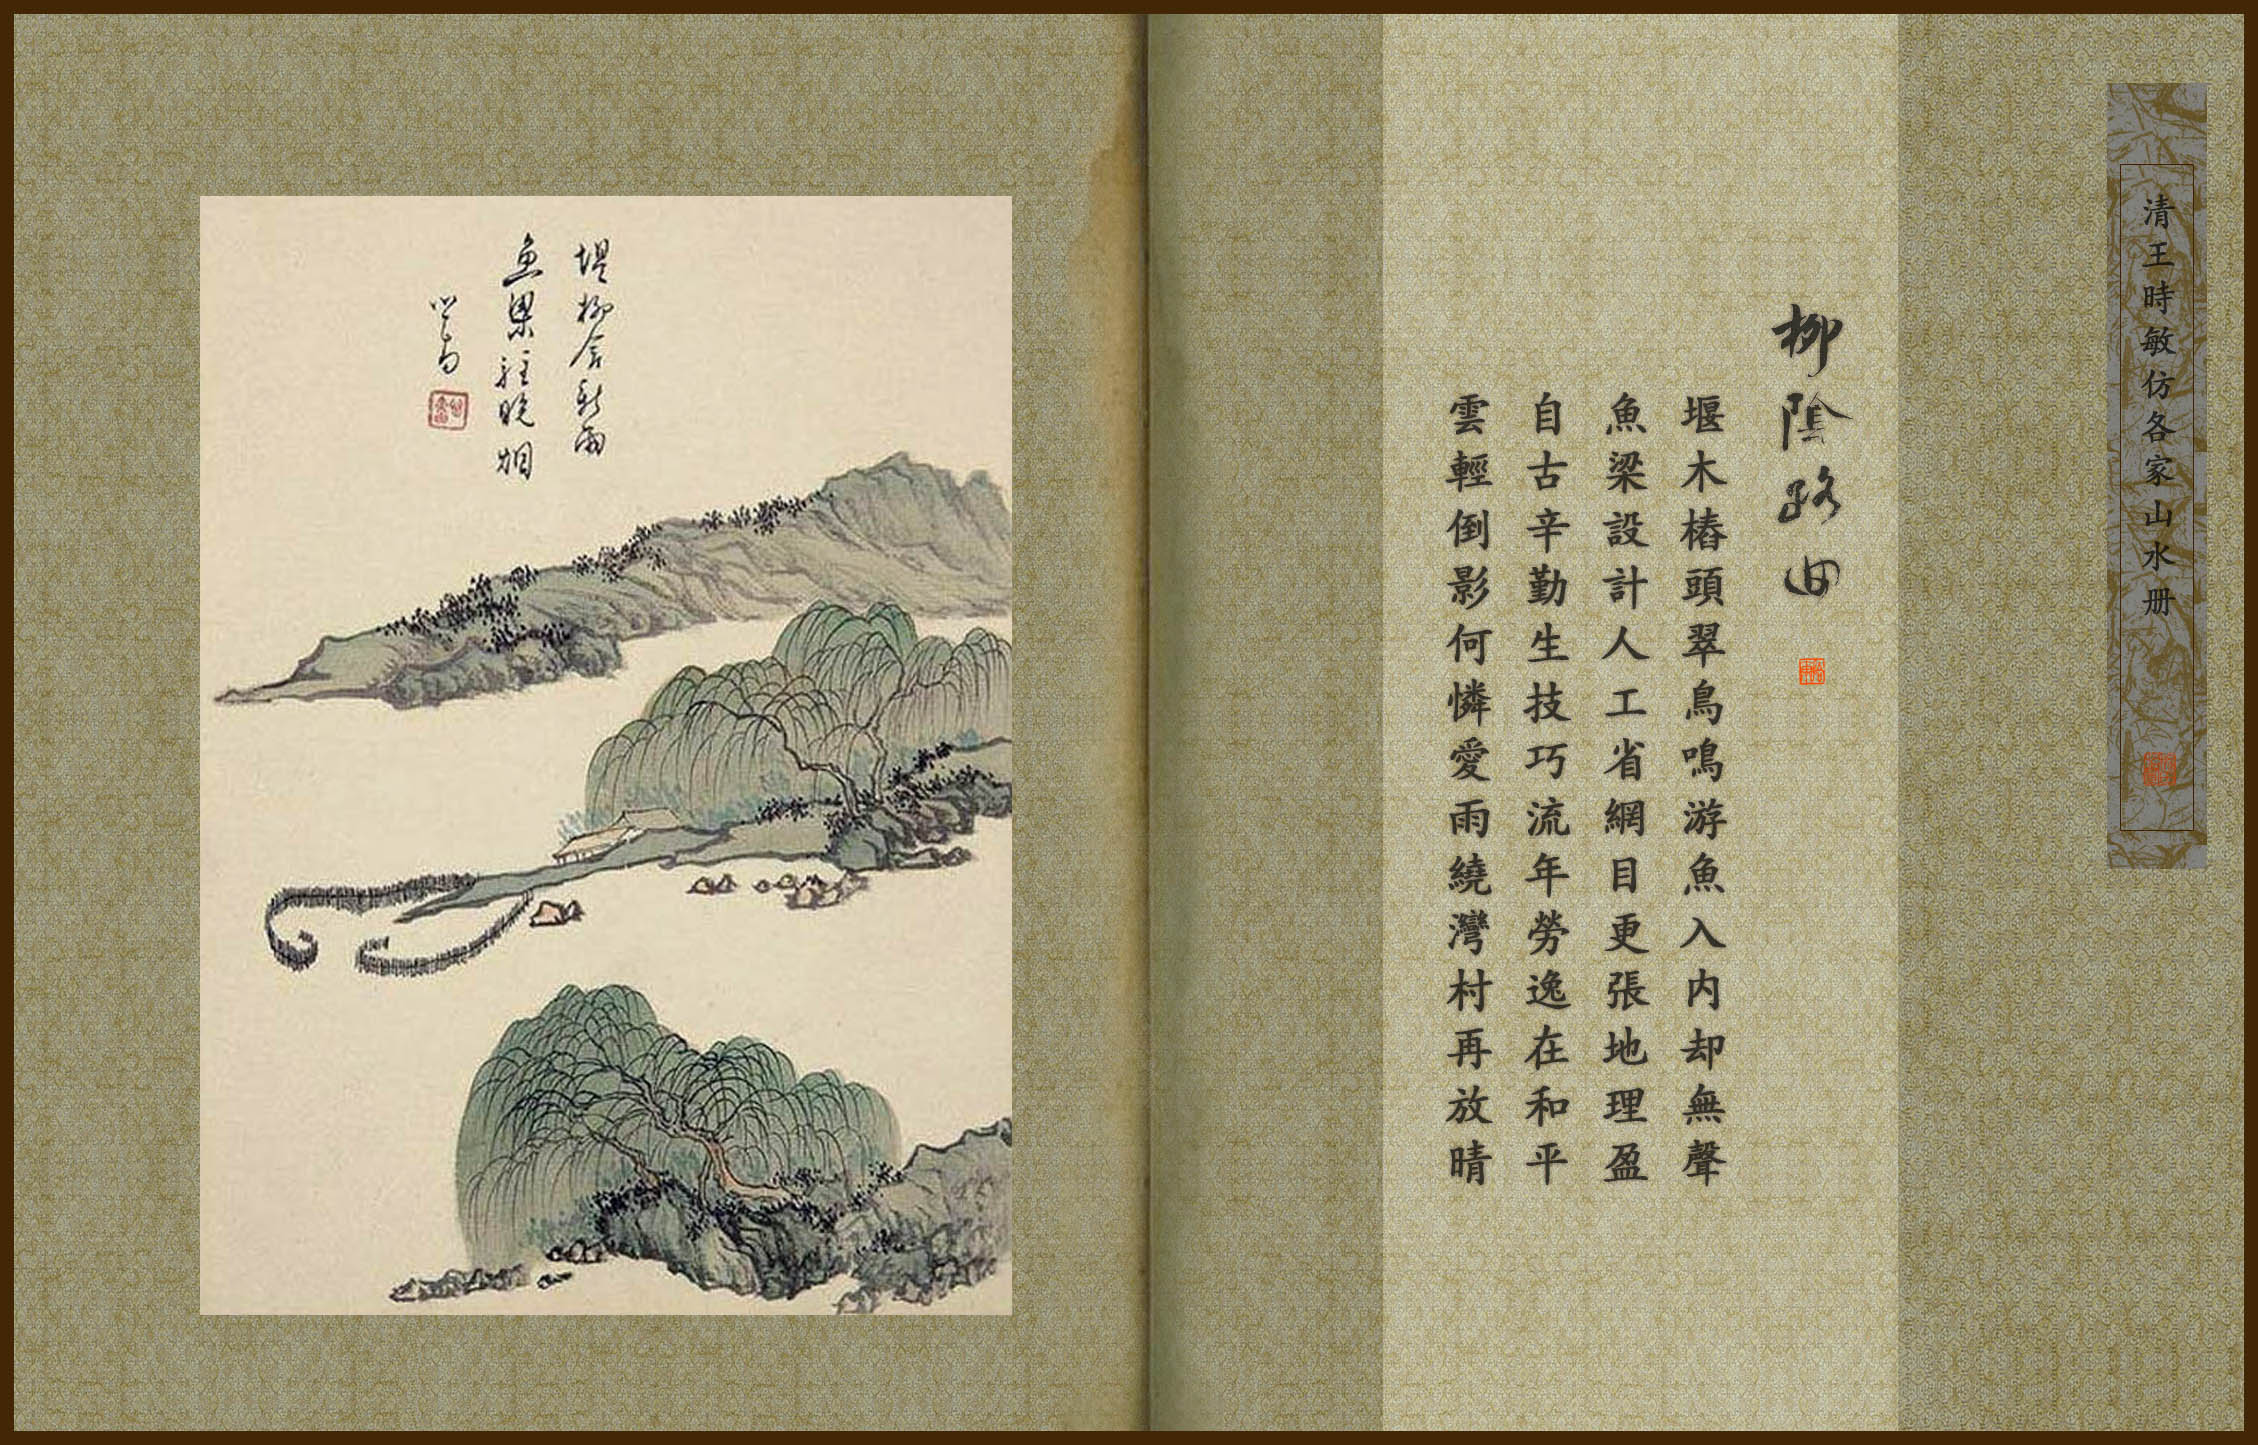 清王時敏仿各家山水册
柳陰路曲
堰木樁頭翠鳥鳴游魚入内却無聲
魚梁設計人工省網目更張地理盈
自古辛勤生技巧流年勞逸在和平
雲輕倒影何憐愛雨繞灣村再放晴
堤柳含新雨
魚梁經晚烟
心畬